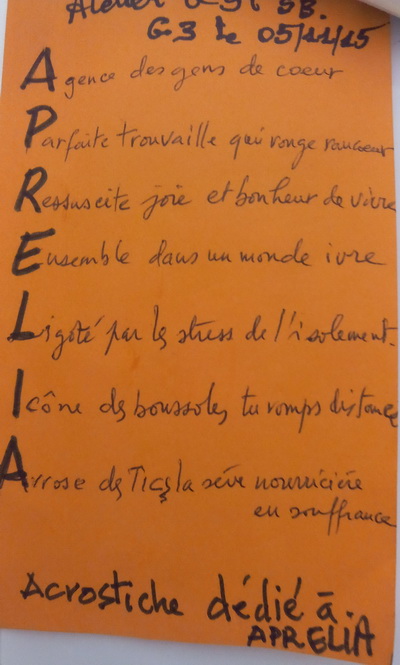 Atelier
G3 le 05/11/15
Agence des gens de coeur
Parfaite trouvaille qui ronge rancoeur
Ressuscite joie et bonheur de vivre
Ensemble dans un monde ivre
Ligoté par le stress de l'isolement.
Icône des boussoles, tu romps distance
Arrose des Tics la sève nourricière
en souffrance
Acrostiche dédié à.
APRELIA